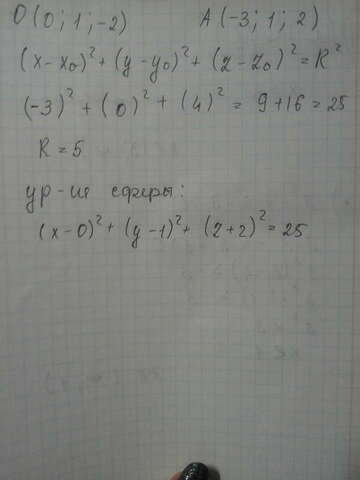 O (0; 1; -2) A (-3; 1; 2)
(x-x₀)² + (y-y₀)² + (z-z₀)² = R²
(-3)² + (0)² + (4)² = 9+16 = 25
R = 5
ур-ие сферы:
(x-0)² + (y-1)² + (z+2)² = 25